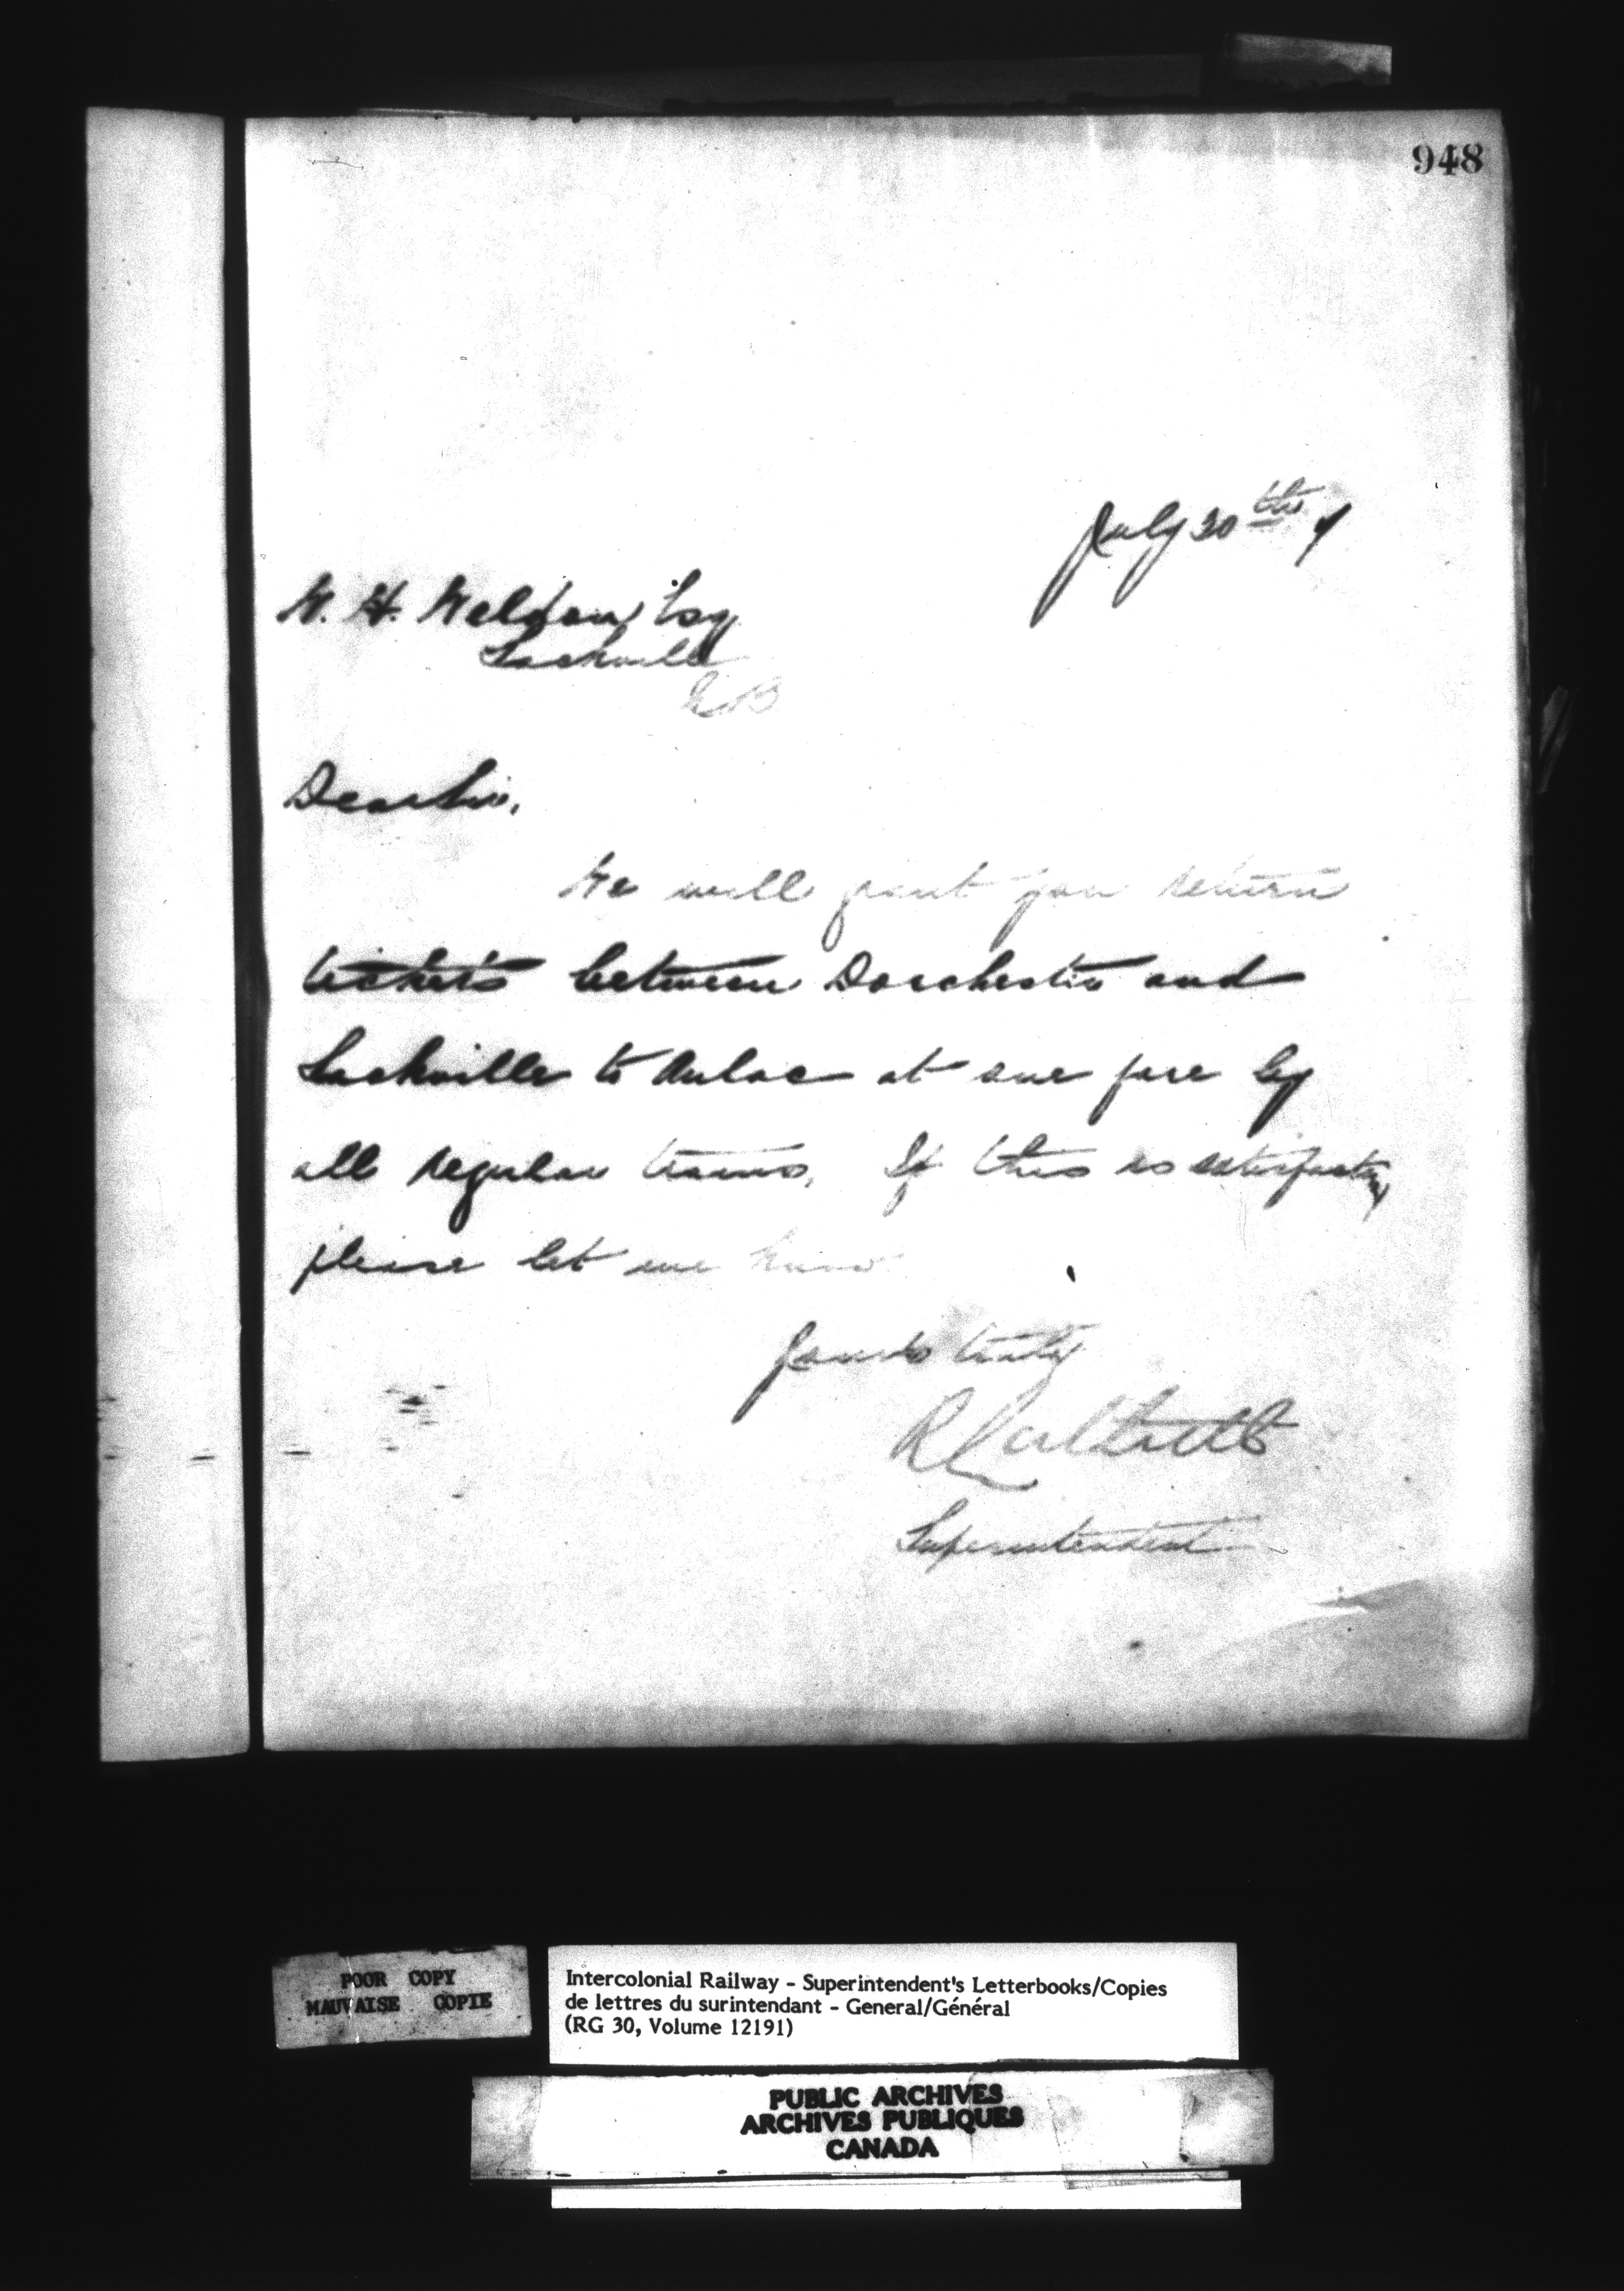 948
July 30th 7
W. H. Weldon Esq
Sackville
N B
Dear Sir,
We will grant you return
tickets between Dorchester and
Sackville to Aulac at one fare by
all regular trains. If this is satisfactory
please let me know
Yours truly
R Luttrell
Superintendent
POOR COPY
MAUVAISE COPIE
Intercolonial Railway - Superintendent's Letterbooks/Copies
de lettres du surintendant - General/Général
(RG 30, Volume 12191)
PUBLIC ARCHIVES
ARCHIVES PUBLIQUES
CANADA